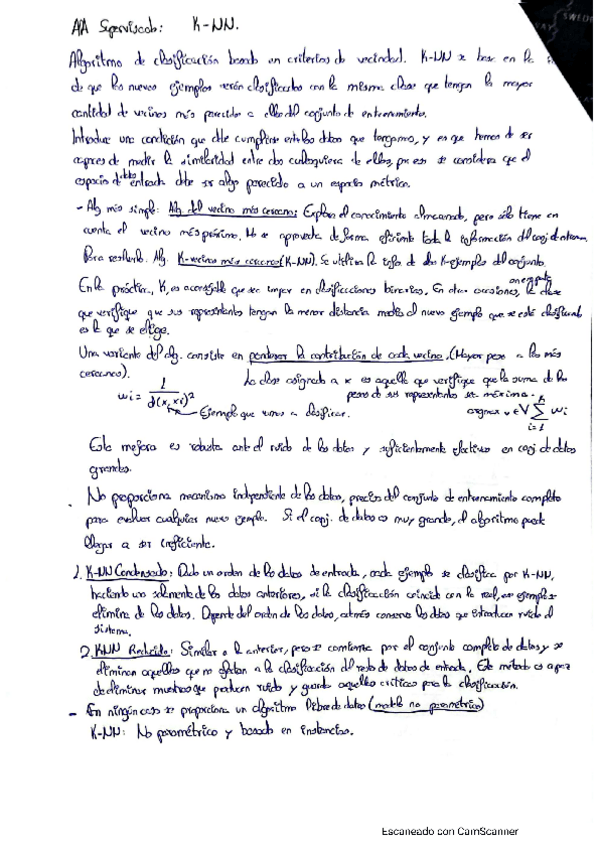 AA Supervisado: K-NN.
Algoritmo de clasificación basado en criterios de vecindad. K-NN se basa en la
de que los nuevos ejemplos serán clasificados con la misma clase que tengan la mayor
cantidad de vecinos más parecidos a ellos del conjunto de entrenamiento.
Introduce una condición que debe cumplirse entre los datos que tengamos, y es que hemos de ser
capaces de medir la similaridad entre dos cualesquiera de ellos, por eso se considera que el
espacio de entrada debe ser algo parecido a un espacio métrico.
- Alg más simple: Alg. del vecino más cercano: Explora el conocimiento almacenado, pero sólo tiene en
cuenta el vecino más próximo. No se aprovecha de forma eficiente toda la información del conj de entrenam.
Para resolverlo. Alg. K-vecinos más cercanos (K-NN). Se utiliza la info. de los K-ejemplos del conjunto.
En la práctica, K, es aconsejable que sea impar en clasificaciones binarias. En otras ocasiones, la clase
que verifique que sus representantes tengan la menor distancia media al nuevo ejemplo que se está clasificando
es la que se elige.
Una variante del alg. consiste en ponderar la contribución de cada vecino. (Mayor peso a los más
cercanos). La clase asignada a x es aquella que verifique que la suma de los
pesos de sus representantes sea máxima.
wi = 1 / d(x, xi)² argmax v∈V Σ wi
k
i=1
Ejemplo que vamos a clasificar.
Esta mejora es robusta ante el ruido de los datos y suficientemente efectiva en conj de datos
grandes.
. No proporciona mecanismo independiente de los datos, precisa del conjunto de entrenamiento completo
para evaluar cualquier nuevo ejemplo. Si el conj. de datos es muy grande, el algoritmo puede
llegar a ser ineficiente.
1. K-NN Condensado: Dado un orden de los datos de entrada, cada ejemplo se clasifica por K-NN,
haciendo uso solamente de los datos anteriores, si la clasificación coincide con la real, ese ejemplo se
elimina de los datos. Depende del orden de los datos, además conserva los datos que introducen ruido al
sistema.
2. K-NN Reducido: Similar a la anterior, pero se comienza por el conjunto completo de datos y se
eliminan aquellos que no afectan a la clasificación del resto de datos de entrada. Este método es capaz
de eliminar muestras que producen ruido y guarda aquellas críticas para la clasificación.
- En ningún caso se proporciona un algoritmo libre de datos (modelo no paramétrico)
K-NN: No paramétrico y basado en instancias.
Escaneado con CamScanner